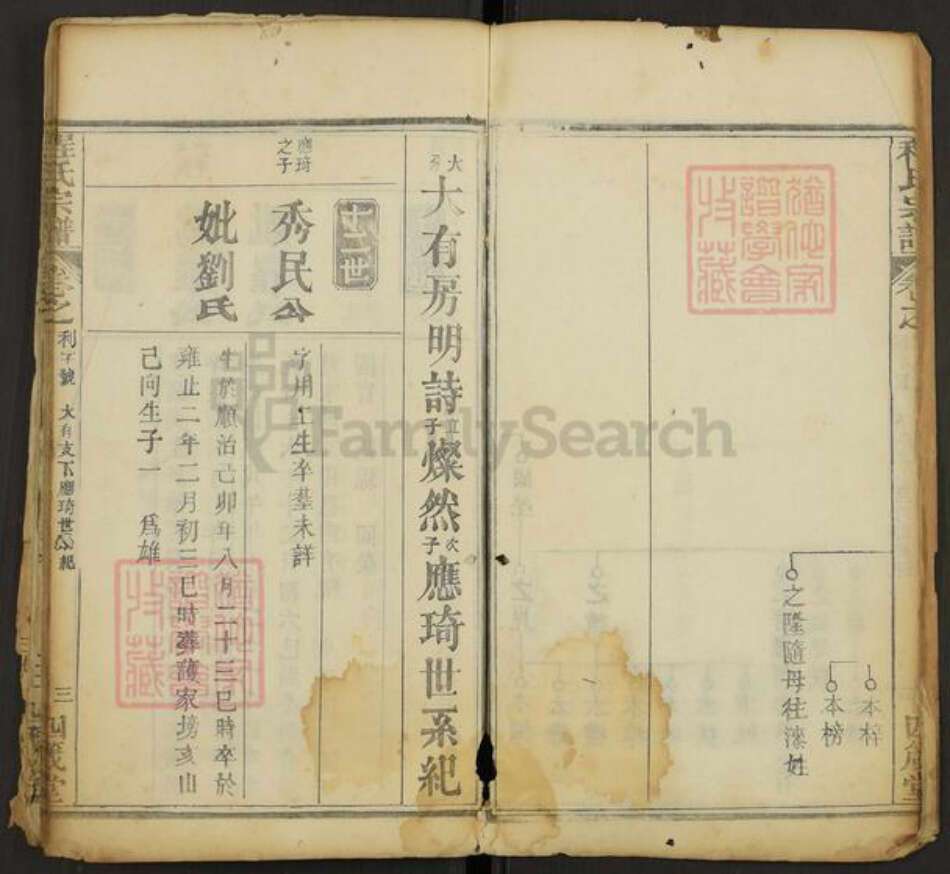 程氏宗譜
卷之
四箴堂
本梓
本榜
之隆隨母往溁姓
大分大有房明詩直子燦然次子應琦世系紀
應琦之子
十一世
秀民公
妣劉氏
字用
生卒墓未詳
生於順治己卯年八月二十三巳時卒於
雍正二年二月初三巳時葬護家塝亥山
己向生子一 爲雄
程氏宗譜
卷之
利字號 大有支下應琦世系紀
三
四箴堂
FamilySearch